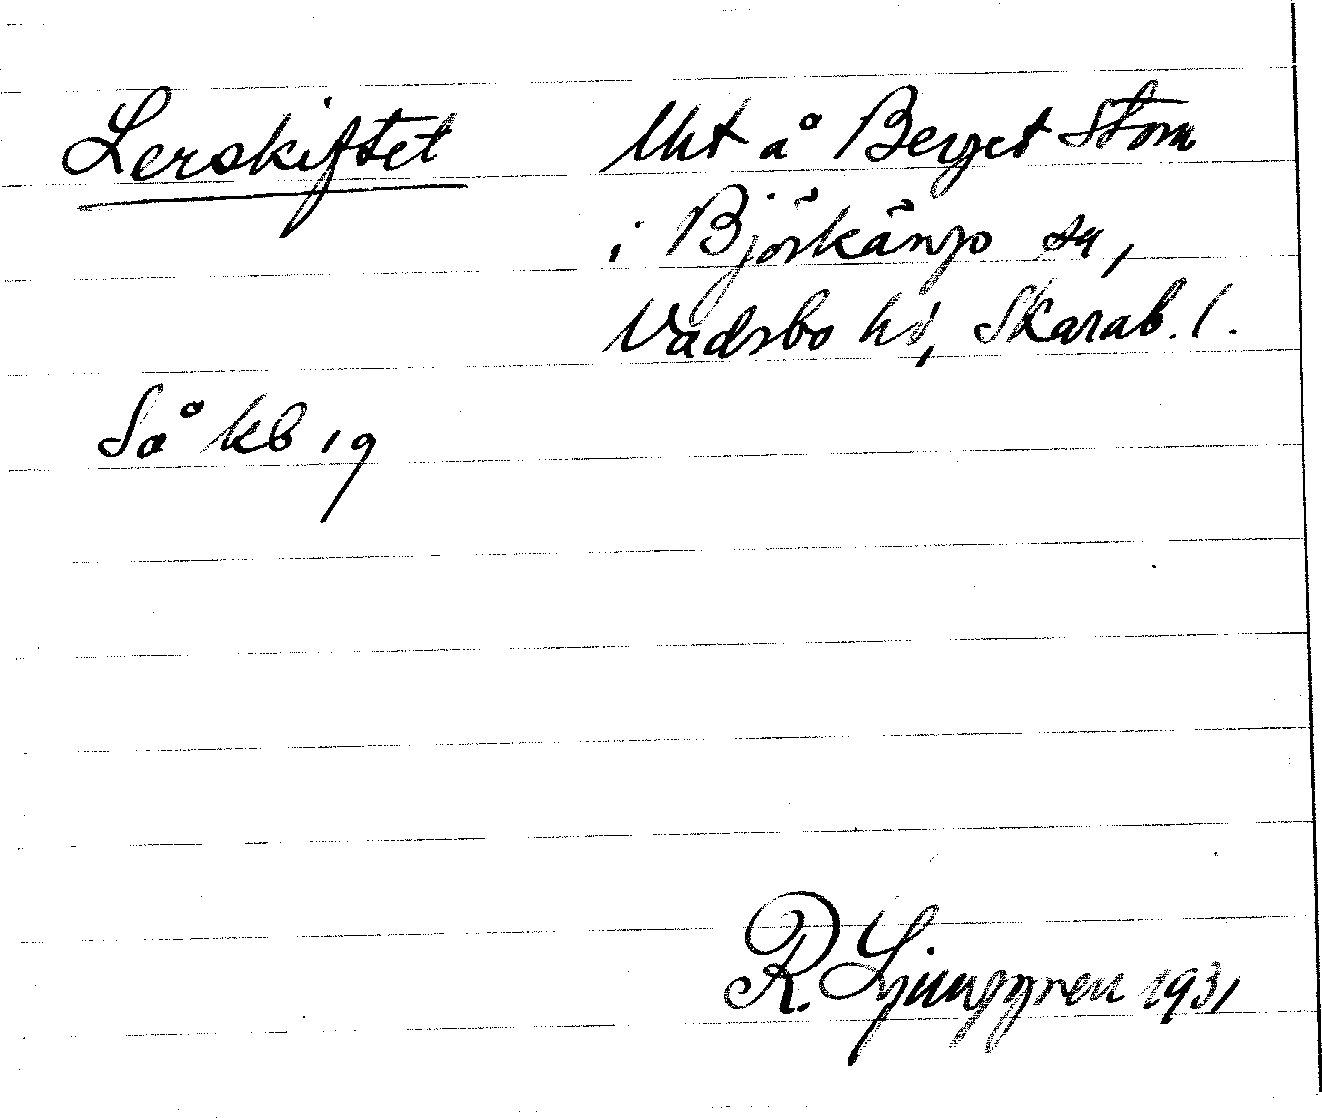 Lerskiftet Ukt å Berget Stom
i Björkängs sn,
Vadsbo hd, Skarab. l.
Så kb 19
R. Ljunggren 1931